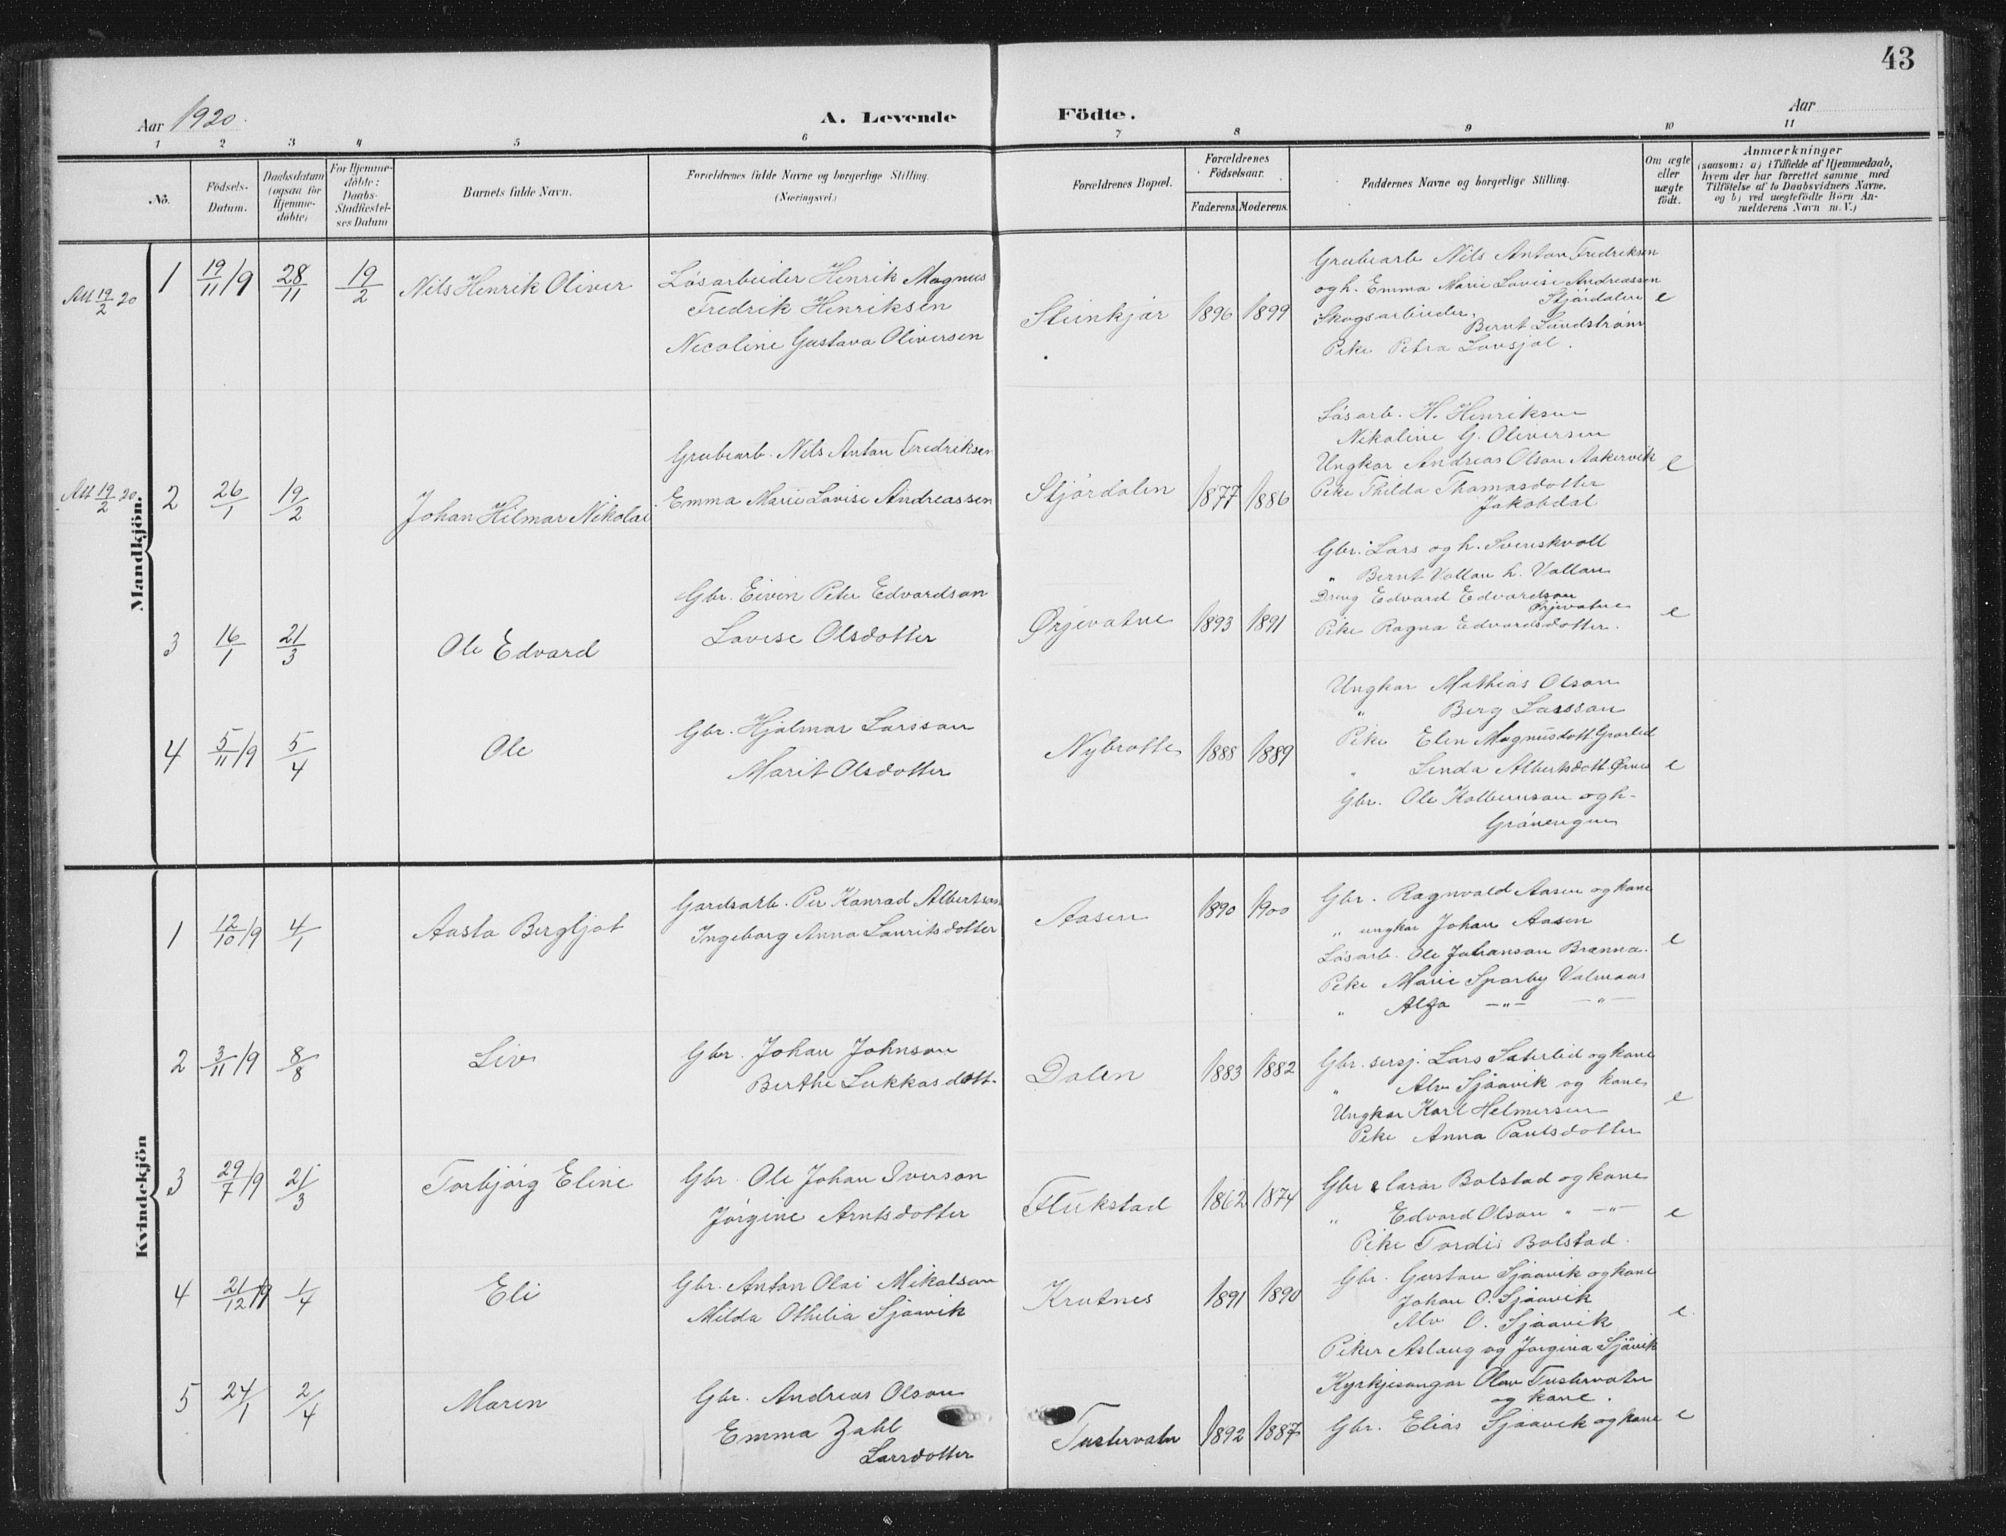 43
Aar 1920.
A. Levende Födte.
Aar
1 2 3 4 5 6 7 8 9 10 11
No.
Födsels-Datum.
Daabsdatum (ogsaa for Hjemmedöbte)
For Hjemmedöbte: Daabs-Stadfæstelses Datum
Barnets fulde Navn.
Forældrenes fulde Navne og borgerlige Stilling. (Næringsvei.)
Forældrenes Bopæl.
Forældrenes Födselsaar.
Faderens. Moderens.
Faddernes Navne og borgerlige Stilling.
Om ægte eller uægte födt.
Anmærkninger
(saasom: a) i Tilfælde af Hjemmedaab, hvem der har forrettet samme, med Tilföielse af to Daabsvidners Navne, og b) ved uægtefödte Börn Anmelderens Navn m. V.)
Mandkjön.
Att 19/2 20
1 19/11 19 28/11 19/2 Nils Henrik Oliver
Lösarbeider Henrik Magnus
Fredrik Henriksen
Nicoline Gustava Oliversen
Steinkjär 1896 1899
Grubearb Nils Anton Fredriksen
og h. Emma Marie Lovise Andreassen
Stjördalen e
Skogsarbeider.
Bernt Lundström
Peke Petra Lovsjöl.
Att 19/2 20
2 26/1 19/2 Johan Hilmar Nikolai
Grubearb. Nils Anton Fredriksen
Emma Marie Lovise Andreassen
Stjördalen 1877 1886
Lösarb. H. Henriksen
Nikoline G. Oliversen
Ungkar Andreas Olson Aakervik e
Peke Thilda Thomasdotter
Jakobdal
3 16/1 21/3 Ole Edvard
Gbr. Eivin Peter Edvardson
Lovise Olsdotter
Ørjevatne 1893 1891
Gbr. Lars og h. Svenskvoll
" Bernt Vollan h. Vollan
Dreng Edvard Edvardson
Ørjevatne e
Peke Ragna Edvardsdotter.
4 5/11 19 5/4 Ole
Gbr. Hjalmar Larsson
Marit Olsdotter
Nybrotte 1888 1889
Ungkar Mathias Olson
" Berg Larsson
Peke Elen Magnusdott.
" Linda Albertsdott. e
Gbr. Ole og h.
Grönengen
Kvindekjön
1 12/10 19 4/1 Aasta Bergljot
Gardsarb. Per Konrad Albertson
Ingeborg Anna Lauritsdotter
Aasen 1890 1900
Gbr. Ragnvald Aasen og kone
" ungkar Johan Aasen
Lösarb. Ole Johanson Brænna. e
Peke Marie Sparby Valmaas
" —"— —"—
2 3/11 19 8/8 Liv
Gbr. Johan Johnson
Berthe Lukkasdott.
Dalen 1883 1882
Gbr. sersj. Lars Sæterlid og kone
" Alv Sjaavik og kone e
Ungkar Karl Helmersen
Peke Anna Paulsdotter
3 29/7 19 21/3 Torbjörg Eline
Gbr. Ole Johan Iverson
Jörgine Arntsdotter
Flukstad 1862 1874
Gbr & lærar Bolstad og kone
" Edvard Olson " —"— e
Peke Tordis Bolstad.
4 21/12 19 1/4 Eli
Gbr. Anton Olai Mikalson
Milda Othilia Sjaavik
Krutnes 1891 1890
Gbr. Gustav Sjaavik og kone
Johan O. Sjaavik
Alv O. Sjaavik e
Peker Aslaug og Jörgina Sjåvik
5 24/1 2/4 Maren
Gbr. Andreas Olson
Emma Zahl
Larsdotter
Tustervatn 1892 1887
Kyrkjesongar Olav Tustervatn
og kone.
Gbr. Elias Sjaavik og kone e